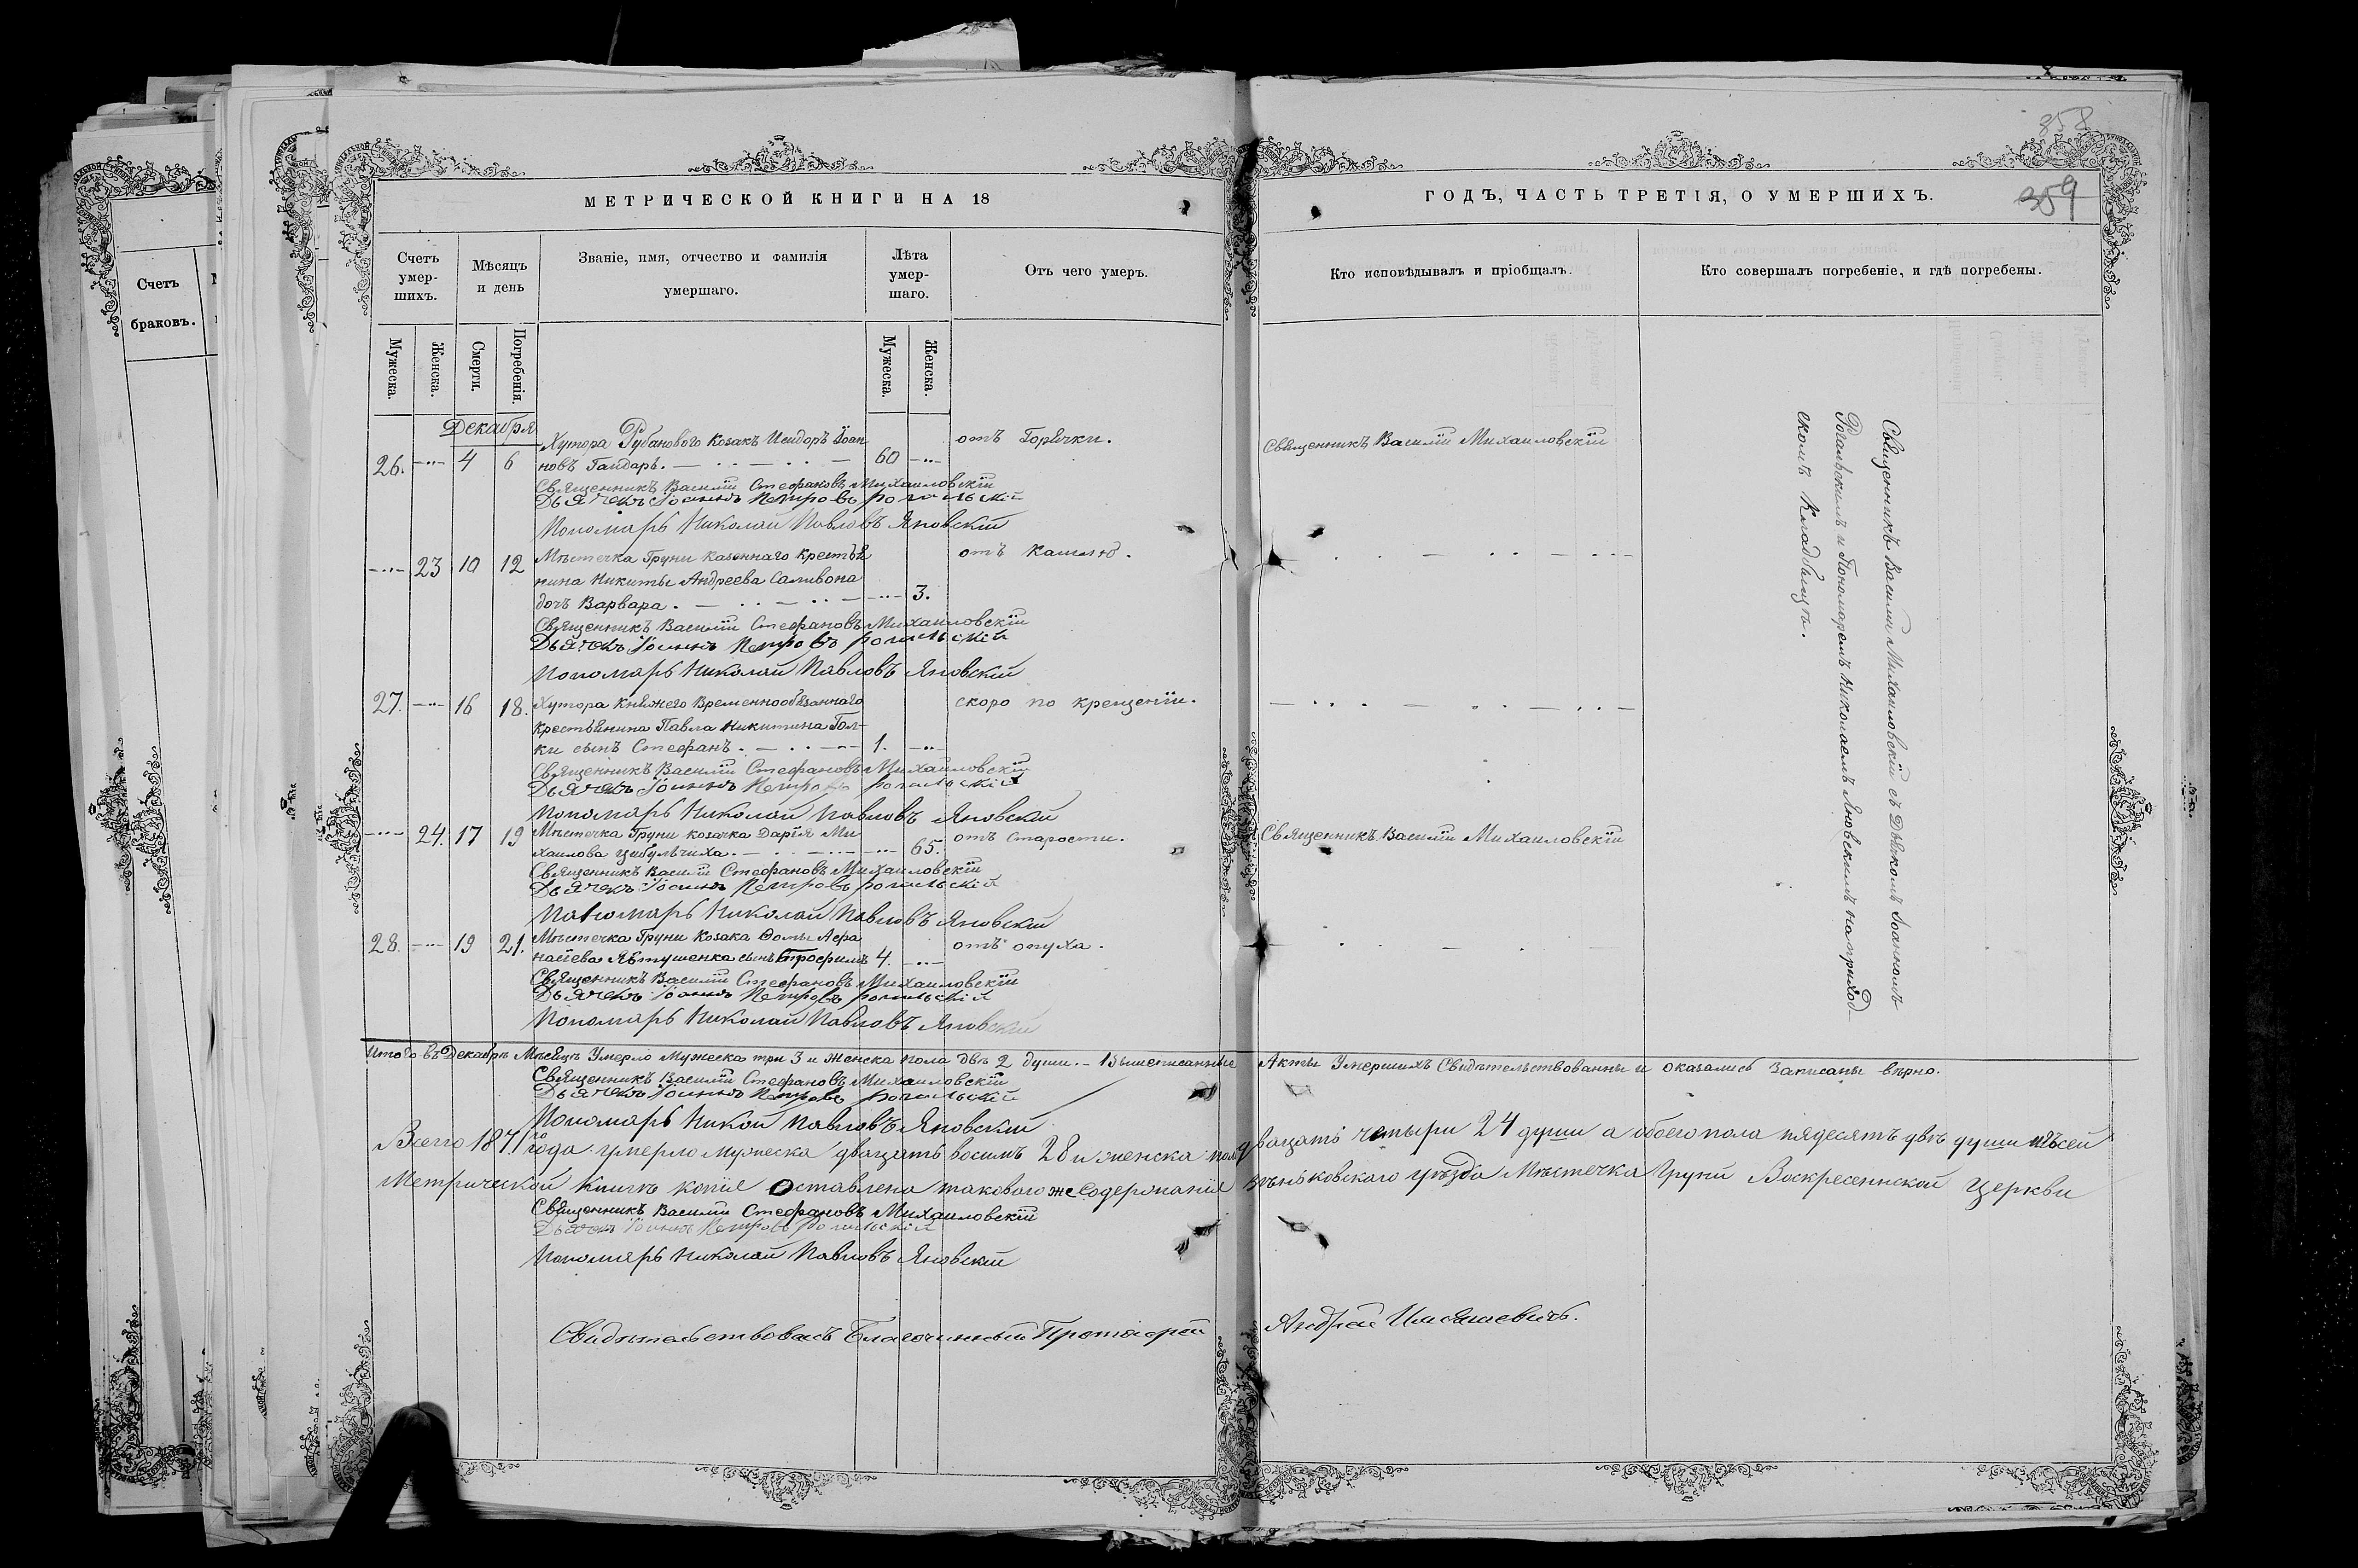 358
359
МЕТРИЧЕСКОЙ КНИГИ НА 18
ГОДЪ, ЧАСТЬ ТРЕТІЯ, О УМЕРШИХЪ.
Счетъ
браковъ.
Счетъ
умер-
шихъ.
Мѣсяцъ
и день
Званіе, имя, отчество и фамилія
умершаго.
Лѣта
умер-
шаго.
Отъ чего умеръ.
Кто исповѣдывалъ и пріобщалъ.
Кто совершалъ погребеніе, и гдѣ погребены.
Мужеска.
Женска.
Смерти.
Погребенія.
Мужеска.
Женска.
Декабря
Хутора Рубанового козакъ Исидоръ Іоан
отъ Горячки.
Священникъ Василій Михаиловскій
26. 4 6 новъ Гайдарь. 60
Священникъ Василій Стефановъ Михаиловскій
Дьячекъ Іоаннъ Петровъ Рогальскій
Пономарь Николай Павловъ Яновскій
23 10 12 Мѣстечка Груни казеннаго крестья
отъ кашлю.
нина Никиты Андреева Саливона
дочь Варвара. 3.
Священникъ Василій Стефановъ Михаиловскій
Дьячекъ Іоаннъ Петровъ Рогальскій
Пономарь Николай Павловъ Яновскій
27. 16 18. Хутора Княжего Временнообязаннаго
скоро по крещеніи.
крестьянина Павла Никитина Гол-
ки сынъ Стефанъ. 1.
Священникъ Василій Стефановъ Михаиловскій
Дьячекъ Іоаннъ Петровъ Рогальскій
Пономарь Николай Павловъ Яновскій
24. 17 19 Мѣстечка Груни козачка Дарія Ми
отъ старости.
Священникъ Василій Михаиловскій
хаилова Цибульчиха. 65.
Священникъ Василій Стефановъ Михаиловскій
Дьячекъ Іоаннъ Петровъ Рогальскій
Пономарь Николай Павловъ Яновскій
28. 19 21. Мѣстечка Груни козака Ѳомы Афа
отъ опуха.
насіева Явтушенка сынъ Трофимъ 4.
Священникъ Василій Стефановъ Михаиловскій
Дьячекъ Іоаннъ Петровъ Рогальскій
Пономарь Николай Павловъ Яновскій
Священникъ Василій Михаиловскій съ Дьякомъ Іоанномъ
Рогальскимъ и Пономаремъ Николаемъ Яновскимъ на приход
скомъ Кладбищѣ.
Итого въ Декабрѣ Мѣсяцѣ Умерло Мужеска три 3 и Женска пола двѣ 2 души. Вышеписанные Акты Умершихъ Свидѣтельствованны и оказались Записаны вѣрно.
Священникъ Василій Стефановъ Михаиловскій
Дьячекъ Іоаннъ Петровъ Рогальскій
Пономарь Никой Павловъ Яновскій
Всего 1871го года умерло мужеска двацать восимъ 28 и женска пола двацать четыри 24 души а обоего пола пядесятъ двѣ души Въ сей
Метрической книгѣ копія оставлена таковагоже Содержанія Зѣньковского уѣзда Мѣстечка Груни Воскресеннской Церкви
Священникъ Василій Стефановъ Михаиловскій
Дьячекъ Іоаннъ Петровъ Рогальскій
Пономарь Николай Павловъ Яновскій
Свидѣтельствовалъ Благочинный Протоіерей Андрей